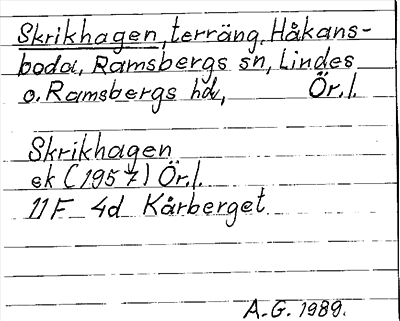 Skrikhagen, terräng, Håkans-
boda, Ramsbergs sn, Lindes
o. Ramsbergs hd, Ör. l.
Skrikhagen
ek (1957) Ör. l.
11F 4d Kårberget
A.G. 1989.